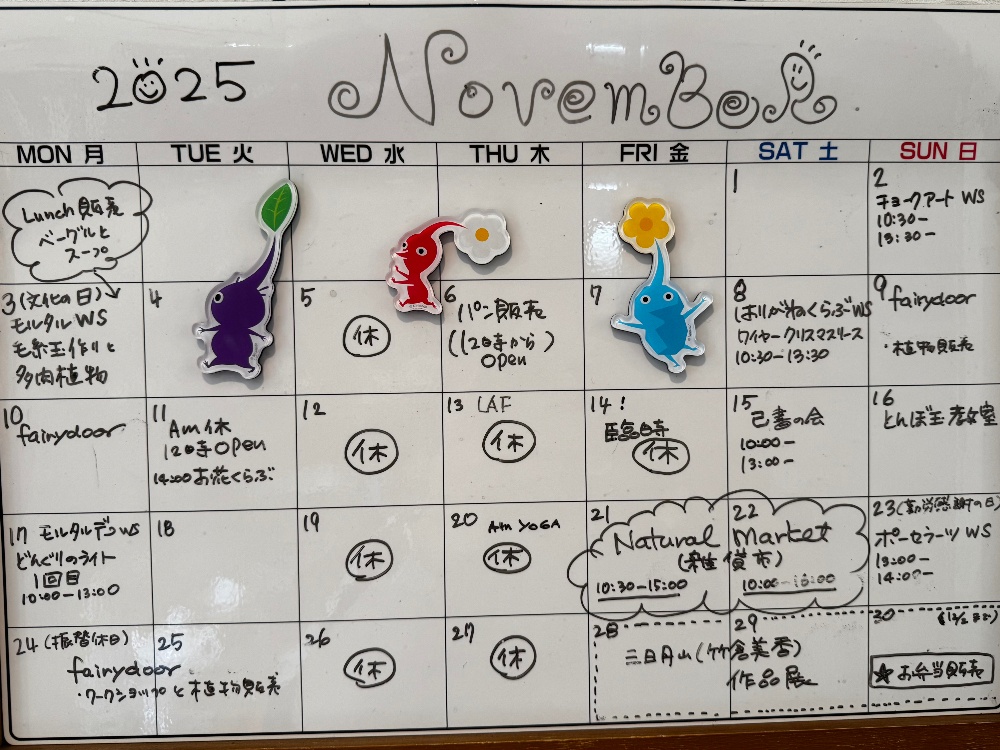 2025 November
MON 月 TUE 火 WED 水 THU 木 FRI 金 SAT 土 SUN 日
Lunch販売
ベーグルと
スープ
1
2
チョークアート WS
10:30-
13:30-
3 (文化の日)
モルタル WS
毛糸玉作りと
多肉植物
4
5
休
6
パン販売
(12時から)
Open
7
8
はりがねくらぶWS
ワイヤークリスマスリース
10:30-13:30
9 fairydoor
・植物販売
10
fairydoor
11
Am 休
12時Open
14:00お花くらぶ
12
休
13 LAF
休
14!
臨時
休
15
己書の会
10:00-
13:00-
16
とんぼ玉教室
17 モルタルデコWS
どんぐりのライト
1回目
10:00-13:00
18
19
休
20 Am YOGA
休
21
22
Natural market
(雑貨市)
10:30-15:00
10:00-
23(勤労感謝の日)
ポーセラーツ WS
13:00-
14:00-
24 (振替休日)
25
fairydoor
・ワークショップと植物販売
26
休
27
休
28
29
三日月山(竹倉美香)
作品展
30
★お弁当販売